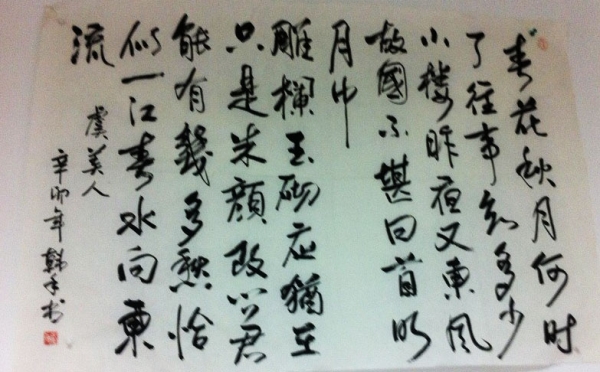 春花秋月何时
了往事知多少
小楼昨夜又東风
故國不堪回首明
月中
雕欄玉砌应猶在
只是朱顔改问君
能有幾多愁恰
似一江春水向東
流
虞美人
辛卯年 韩书